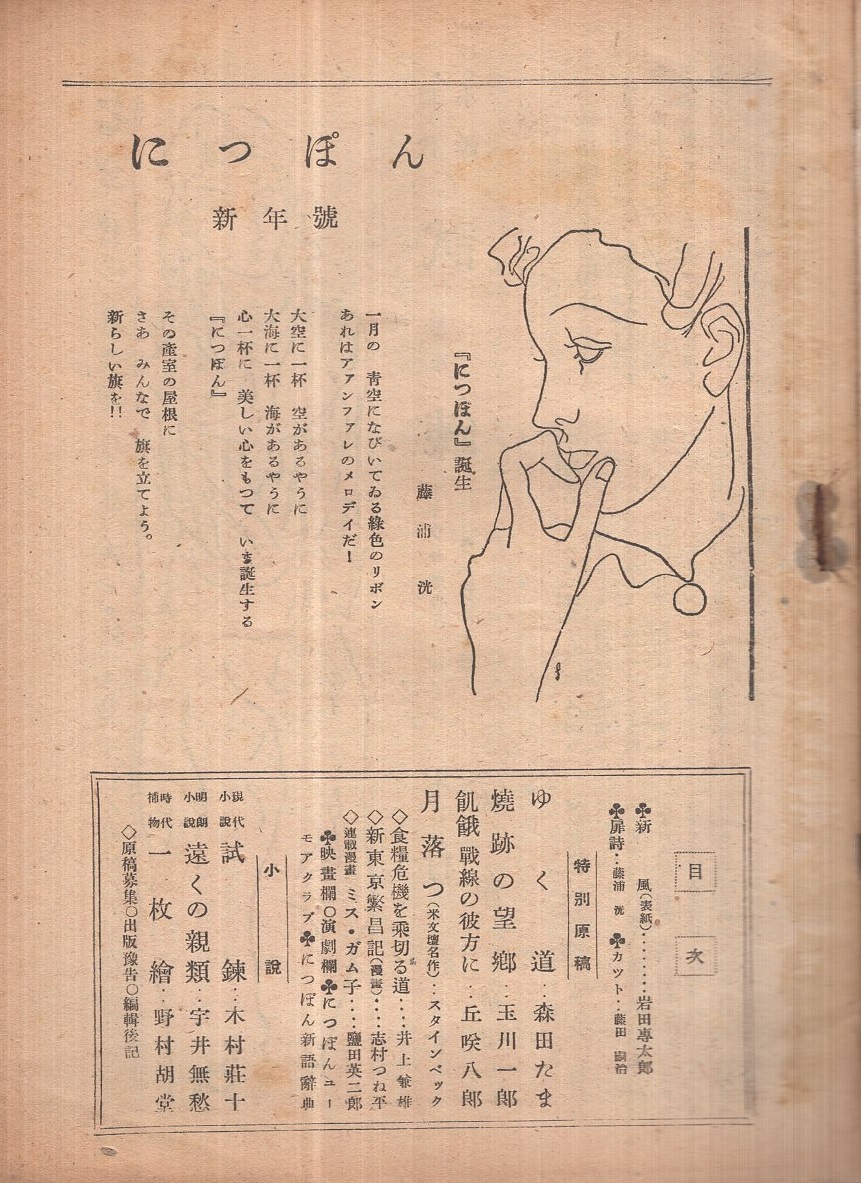 にっぽん
新年號
『にっぽん』誕生
藤浦洸
一月の 靑空になびいてゐる綠色のリボン
あれはアアンファレのメロデイだ！
大空に一杯 空があるやうに
大海に一杯 海があるやうに
心一杯に 美しい心をもつて いま誕生する
『にっぽん』
その產室の屋根に
さあ みんなで 旗を立てよう。
新らしい旗を!!
目次
♣新 風(表紙)・・・・・・・岩田專太郎
♣扉詩・・藤浦洸 ♣カツト・・藤田嗣治
特別原稿
ゆく道・・森田たま
燒跡の望鄕・・玉川一郎
飢餓戰線の彼方に・・丘咲八郎
月落つ(米文壇名作)・・スタインベック
◇食糧危機を乘切る道・・・・井上兼雄
◇新東京繁昌記(漫畫)・・・・志村つね平
◇連載漫畫 ミス・ガム子・・・・鹽田英二郎
♣映畫欄○演劇欄♣にっぽんユー
モアクラブ♣にっぽん新語辭典
小說
現代小說 試鍊・・木村莊十
明朗小說 遠くの親類・・宇井無愁
時代捕物 一枚繪・・野村胡堂
◇原稿募集○出版豫告○編輯後記